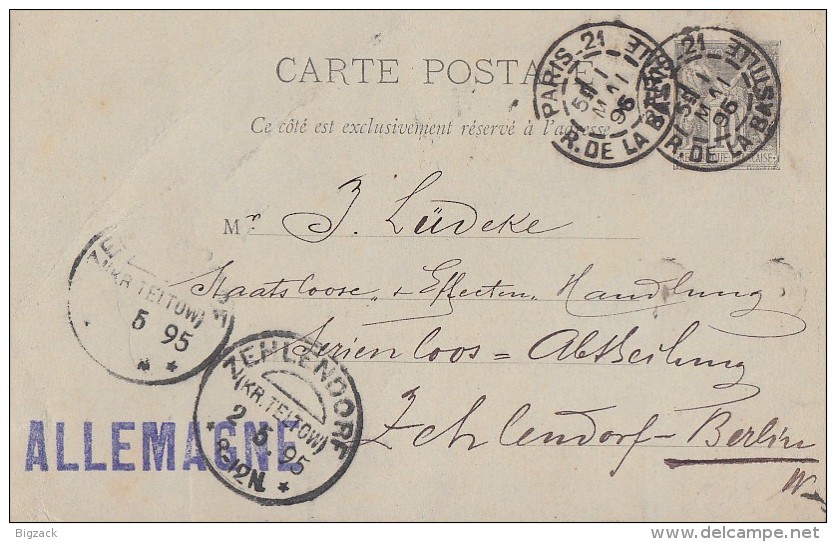 CARTE POSTALE
Ce côté est exclusivement réservé à l'adresse
PARIS - 21
R. DE LA BASTILLE
5E
1
MAI
95
PARIS - 21
R. DE LA BASTILLE
5E
1
MAI
95
Mr J. Lüdeke
Staatsloose- & Effecten Handlung
Serienloos = Abtheilung
Zehlendorf - Berlin
W
(KR. TELTOW)
5 95
ZEHLENDORF
(KR. TELTOW)
2.5.95
8-12N.
ALLEMAGNE
Bigzack
www.delcampe.net